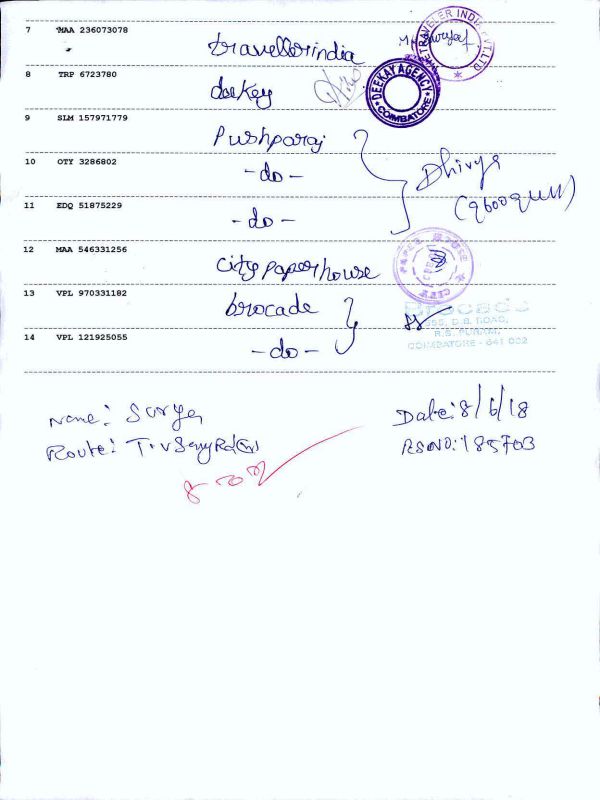 7 *MAA 236073078
travellerindia
TRAVELER INDIA PVT.LTD
8 TRP 6723780
deekey
DEEKAY AGENCY
COIMBATORE
9 SLM 157971779
Pushparaj
10 OTY 3286802
-do-
Dhivya
11 EDQ 51875229
-do-
12 MAA 546331256
citypaperhouse
PAPER HOUSE
CITY
13 VPL 970331182
brocade
Brocade
D.B. ROAD,
R.S. PURAM,
COIMBATORE - 641 002
14 VPL 121925055
-do-
Name: Surya
Date: 8/6/18
Route: